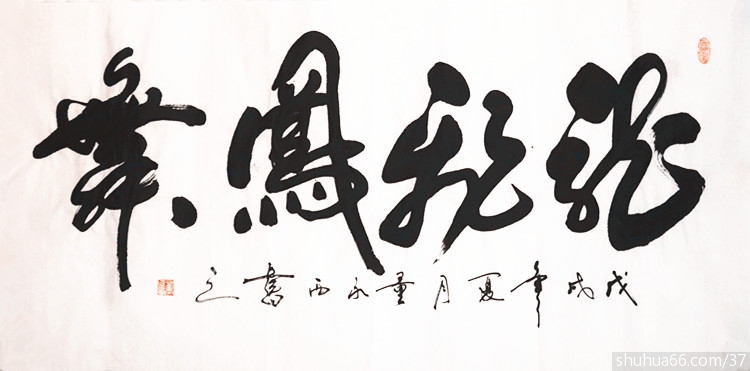 龍飛鳳舞
戊戌年夏月永西書之
shuhua66.com/37